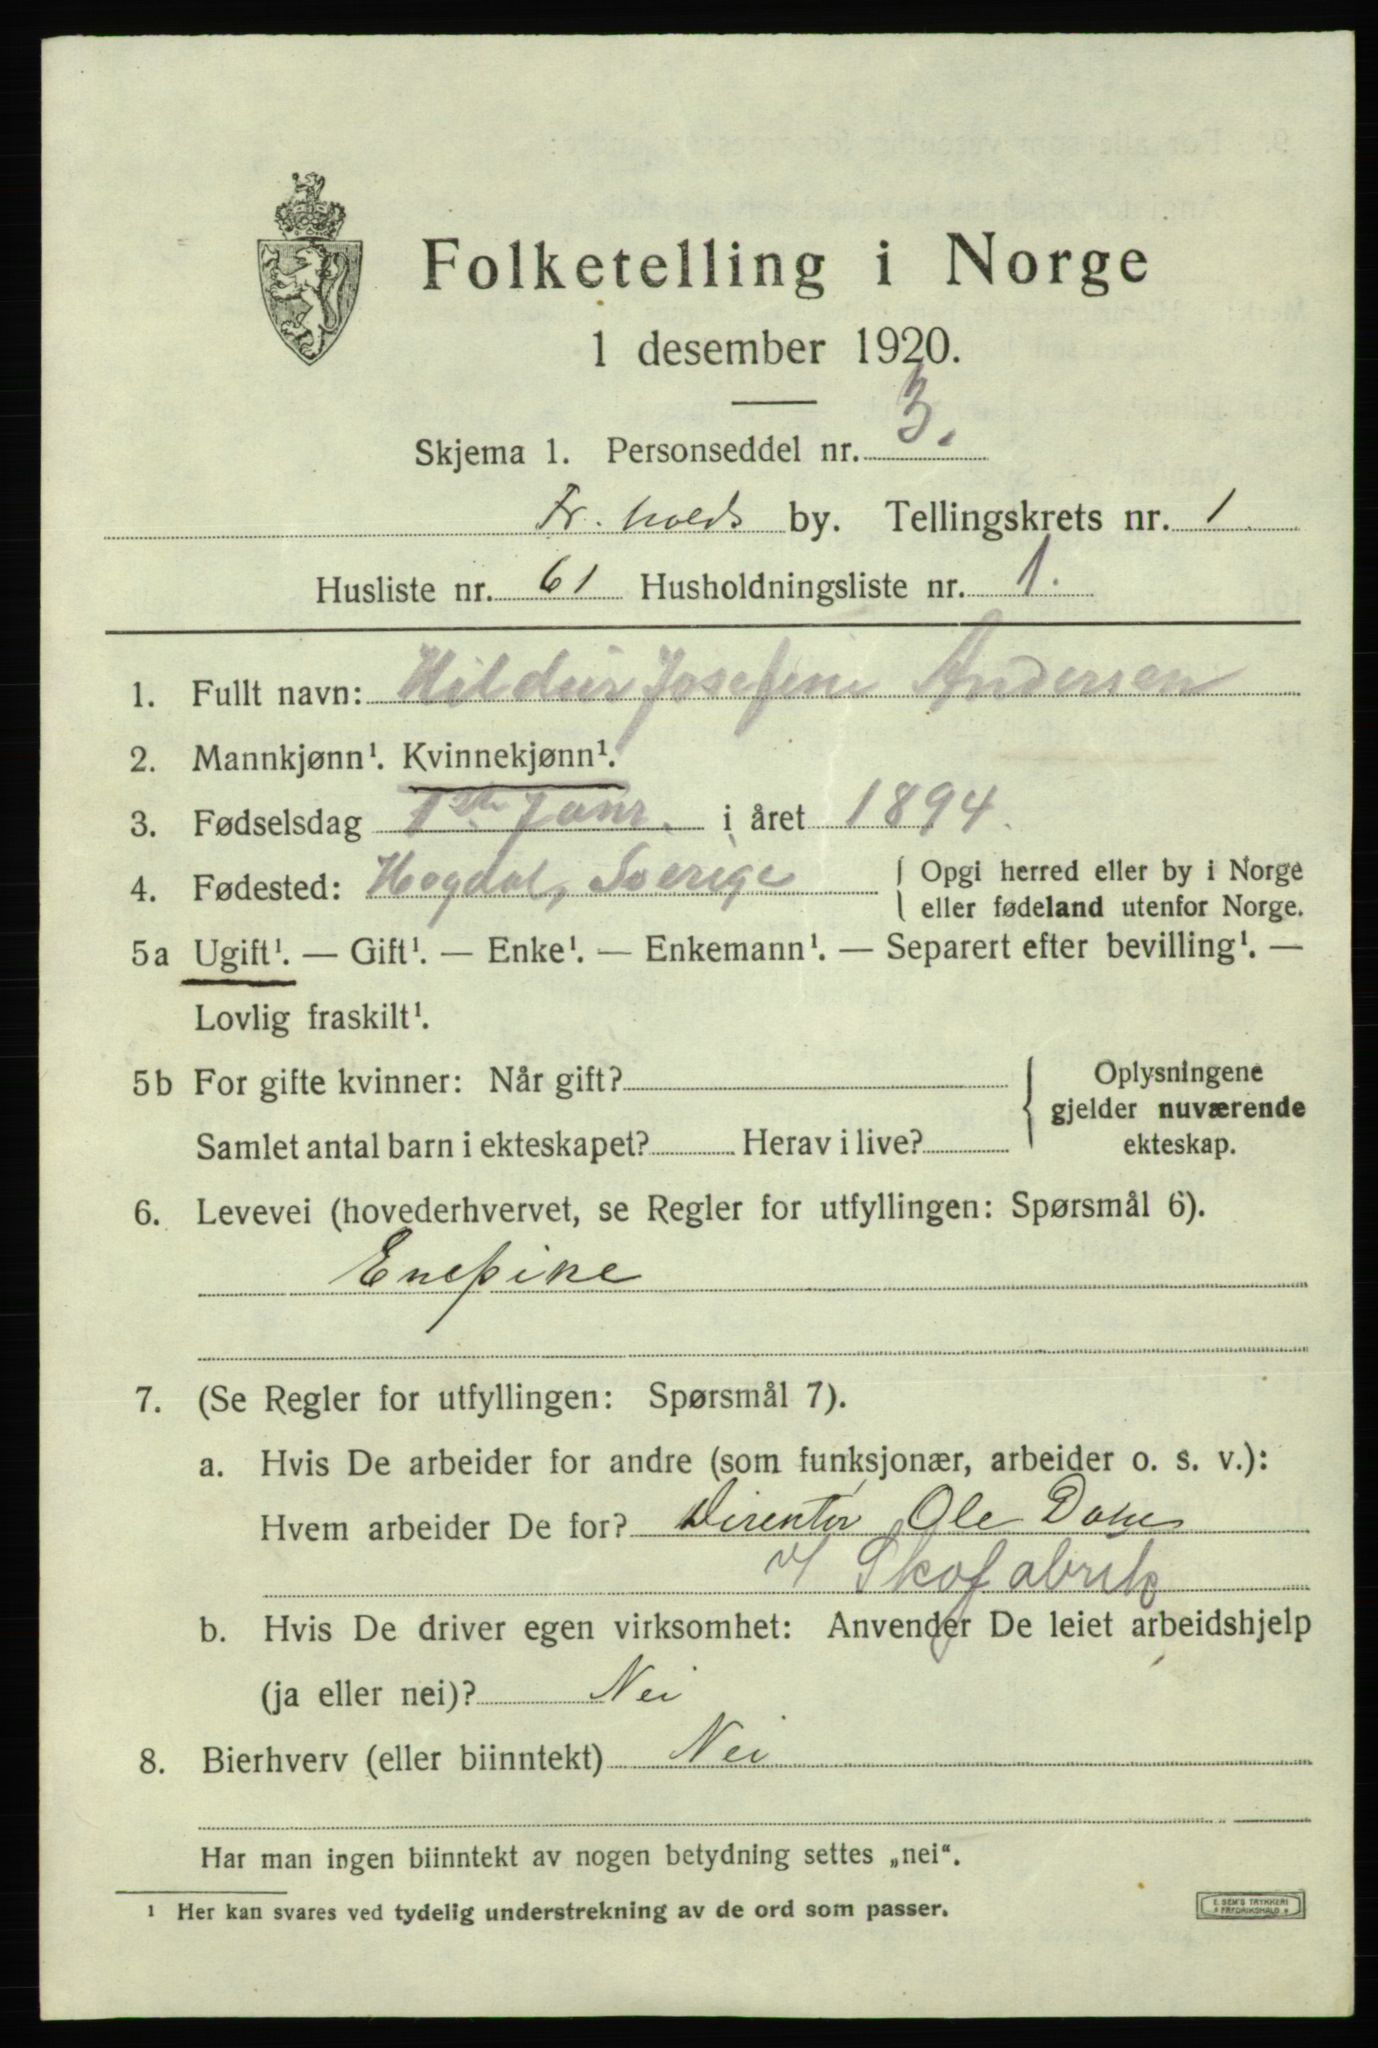 Folketelling i Norge
1 desember 1920.
Skjema 1. Personseddel nr. 3.
Fr.halds by. Tellingskrets nr. 1
Husliste nr. 61 Husholdningsliste nr. 1.
1. Fullt navn: Hildur Josefine Andersen
2. Mannkjønn¹. Kvinnekjønn¹.
3. Fødselsdag 1ste Janr. i året 1894.
4. Fødested: Hogdal, Sverige { Opgi herred eller by i Norge
eller fødeland utenfor Norge.
5a Ugift¹. — Gift¹. — Enke¹. — Enkemann¹. — Separert efter bevilling¹. —
Lovlig fraskilt¹.
5b For gifte kvinner: Når gift? { Oplysningene
gjelder nuværende
Samlet antal barn i ekteskapet? Herav i live? ekteskap.
6. Levevei (hovederhvervet, se Regler for utfyllingen: Spørsmål 6).
Enepike
7. (Se Regler for utfyllingen: Spørsmål 7).
a. Hvis De arbeider for andre (som funksjonær, arbeider o. s. v.):
Hvem arbeider De for? Direktør Ole
v/ Skofabrik
b. Hvis De driver egen virksomhet: Anvender De leiet arbeidshjelp
(ja eller nei)? Nei
8. Bierhverv (eller biinntekt) Nei
Har man ingen biinntekt av nogen betydning settes „nei“.
¹ Her kan svares ved tydelig understrekning av de ord som passer.
E. SEM'S TRYKKERI
FREDRIKSHALD